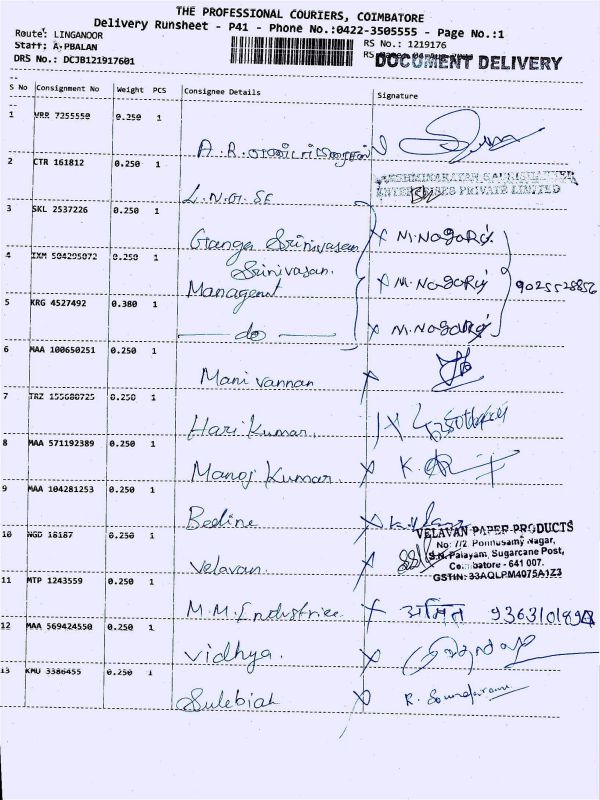 THE PROFESSIONAL COURIERS, COIMBATORE
Delivery Runsheet - P41 - Phone No.:0422-3505555 - Page No.:1
Route: LINGANOOR
Staff: A-PBALAN
DRS No.: DCJB121917601
RS No.: 1219176
DOCUMENT DELIVERY
S No Consignment No Weight PCS Consignee Details Signature
1 VRR 7255550 0.250 1 A. R.
2 CTR 161812 0.250 1 L.N.G. SE
ENTERPRISES PRIVATE LIMITED
3 SKL 2537226 0.250 1 Ganga Srinivasan x M.Nagaraj
4 IXM 504295072 0.250 1 Srinivasan. Managent x M.Nagaraj 9025528856
5 KRG 4527492 0.380 1 do x M.Nagaraj
6 MAA 100650251 0.250 1 Manivannan x
7 TRZ 155680725 0.250 1 Hari Kumar. x
8 MAA 571192389 0.250 1 Manoj Kumar. x K.
9 MAA 104281253 0.250 1 Bedine x
VELAVAN PAPER PRODUCTS
No: 7/2, Ponnusamy Nagar,
S.N. Palayam, Sugarcane Post,
Coimbatore - 641 007.
GSTIN: 33AQLPM4075A1Z3
10 NGD 18187 0.250 1 Velavan. x
11 MTP 1243559 0.250 1 M.M. Industries x अमित
12 MAA 569424550 0.250 1 Vidhya. x
13 KMU 3386455 0.250 1 Sulebiah x R. Soundaram